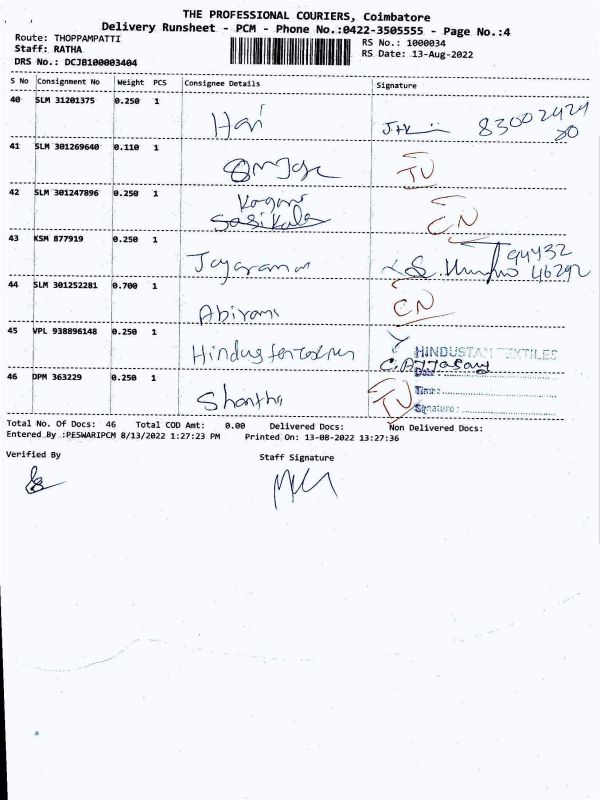 THE PROFESSIONAL COURIERS, Coimbatore
Delivery Runsheet - PCM - Phone No.:0422-3505555 - Page No.:4
Route: THOPPAMPATTI
Staff: RATHA
DRS No.: DCJB100003404
RS No.: 1000034
RS Date: 13-Aug-2022
S No Consignment No Weight PCS Consignee Details Signature
40 SLM 31201375 0.250 1 Hari
41 SLM 301269640 0.110 1 TU
42 SLM 301247896 0.250 1 Sasikala CN
43 KSM 877919 0.250 1 Jayaraman 94432
46292
44 SLM 301252281 0.700 1 Abirami CN
45 VPL 938896148 0.250 1 HINDUSTAN TEXTILES
Date :
46 DPM 363229 0.250 1 Shantha TU Time:
Signature :
Total No. Of Docs: 46 Total COD Amt: 0.00 Delivered Docs: Non Delivered Docs:
Entered By :PESWARIPCM 8/13/2022 1:27:23 PM Printed On: 13-08-2022 13:27:36
Verified By Staff Signature